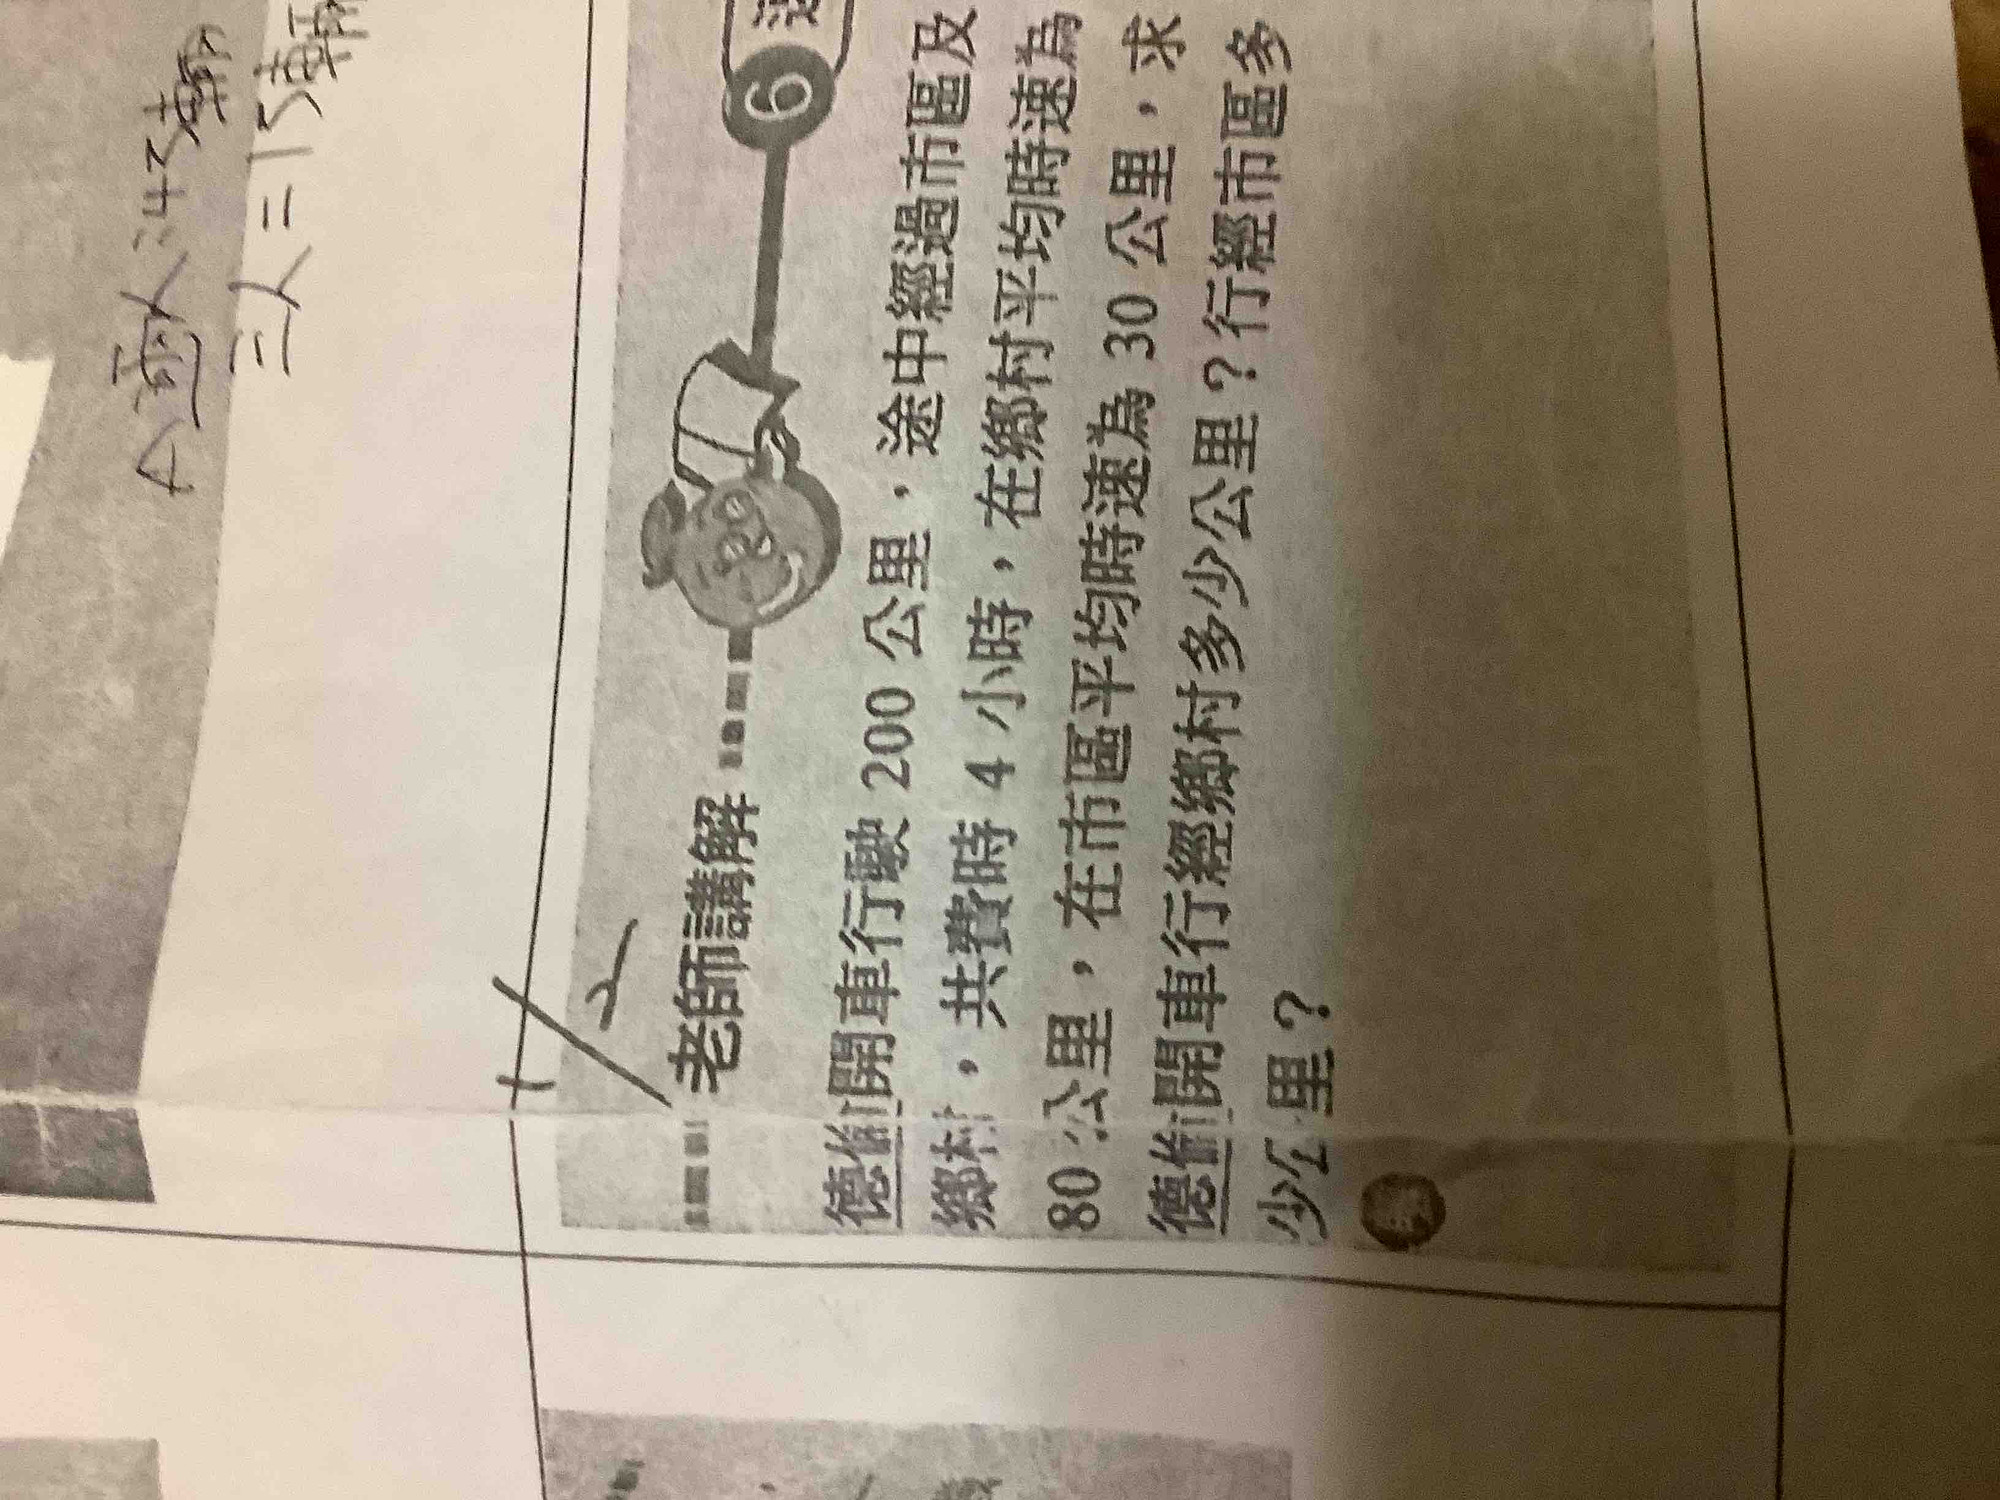 三人=15車輛
老師講解
6
德倫開車行駛 200 公里，途中經過市區及
鄉村，共費時 4 小時，在鄉村平均時速為
80 公里，在市區平均時速為 30 公里，求
德倫開車行經鄉村多少公里？行經市區多
少公里？